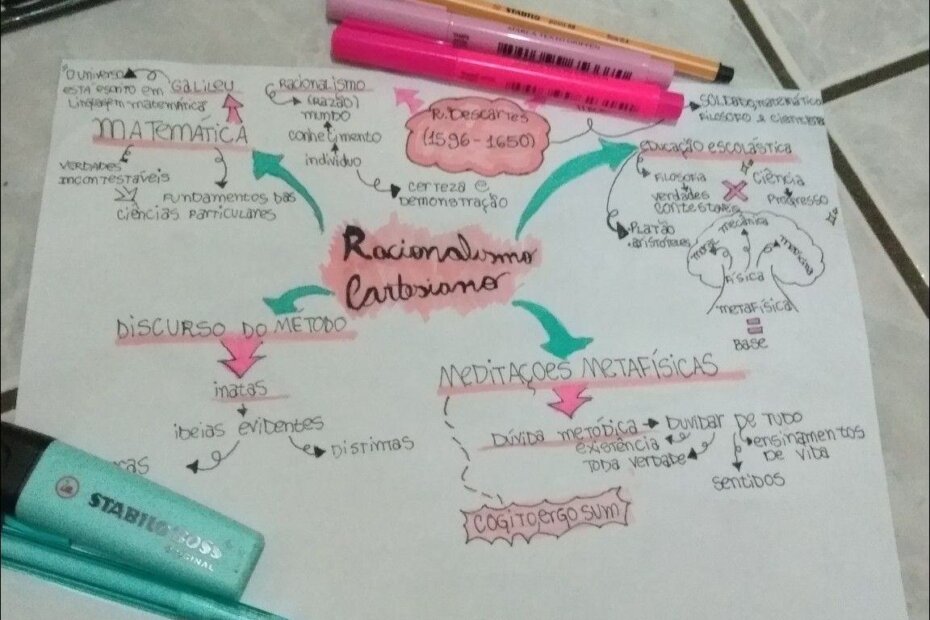 STABILO
O UNIVERSO
ESTÁ ESCRITO EM
Linguagem matemática
GALILEU
MATEMÁTICA
VERDADES
INCONTESTÁVEIS
FUNDAMENTOS DAS
CIÊNCIAS PARTICULARES
RACIONALISMO
(RAZÃO)
MUNDO
CONHECIMENTO
indivíduo
CERTEZA E
DEMONSTRAÇÃO
R. Descartes
(1596-1650)
SOLDADO, MATEMÁTICO
FILOSOFO E CIENTISTA
EDUCAÇÃO ESCOLÁSTICA
FILOSOFIA
VERDADES
CONTESTÁVEIS
CIÊNCIA
PROGRESSO
PLATÃO
ARISTÓTELES
moral
mecânica
medicina
FÍSICA
METAFÍSICA
BASE
Racionalismo
Cartesiano
DISCURSO DO METODO
inatas
IDEIAS EVIDENTES
DISTINTAS
MEDITAÇOES METAFÍSICAS
DÚVIDA METÓDICA DUVIDAR DE TUDO
EXISTÊNCIA
TODA VERDADE
ENSINAMENTOS
DE VIDA
SENTIDOS
COGITO, ERGO SUM
STABILO BOSS
ORIGINAL